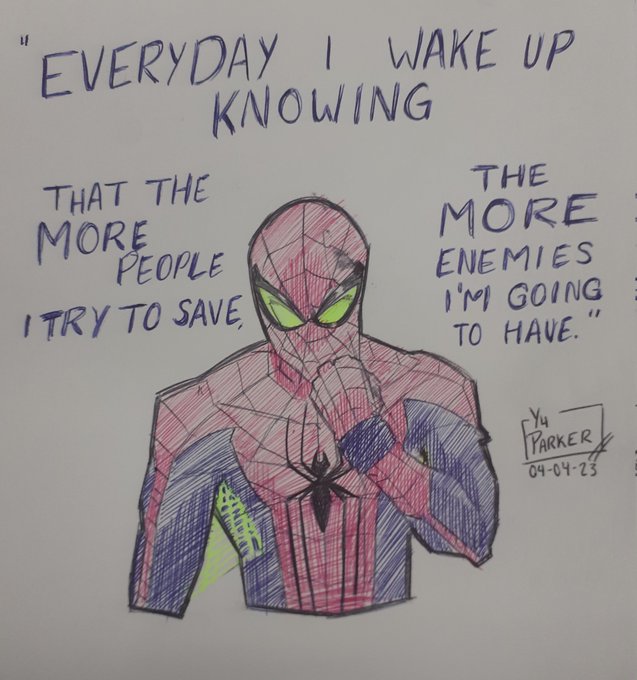 "EVERYDAY I WAKE UP
KNOWING
THAT THE
MORE
PEOPLE
I TRY TO SAVE,
THE
MORE
ENEMIES
I'M GOING
TO HAVE."
Yu
PARKER
04-04-23